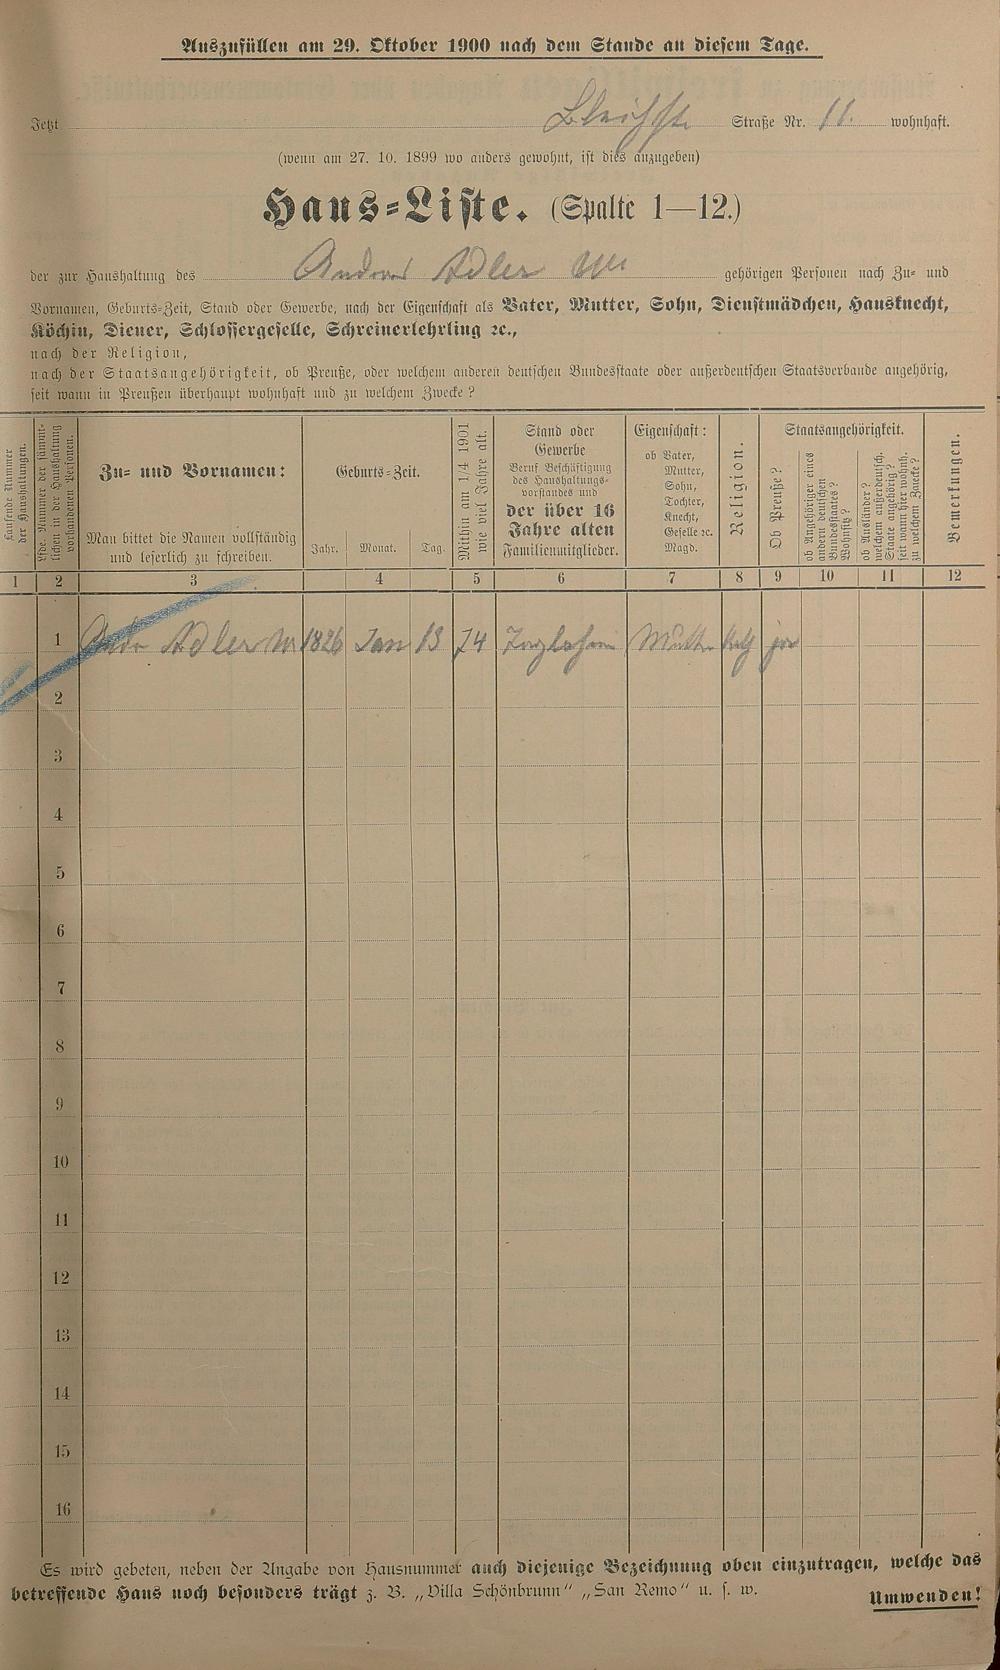 Auszufüllen am 29. Oktober 1900 nach dem Stande an diesem Tage.
Jetzt Bleichstr Straße Nr. 11. wohnhaft.
(wenn am 27. 10. 1899 wo anders gewohnt, ist dies anzugeben)
Haus-Liste. (Spalte 1—12.)
der zur Haushaltung des Andreas Adler Ww gehörigen Personen nach Zu- und
Vornamen, Geburts-Zeit, Stand oder Gewerbe, nach der Eigenschaft als Vater, Mutter, Sohn, Dienstmädchen, Hausknecht,
Köchin, Diener, Schlossergeselle, Schreinerlehrling ꝛc.,
nach der Religion,
nach der Staatsangehörigkeit, ob Preuße, oder welchem anderen deutschen Bundesstaate oder außerdeutschen Staatsverbande angehörig,
seit wann in Preußen überhaupt wohnhaft und zu welchem Zwecke?
Laufende Nummer der Haushaltungen.
Lfde. Nummer der sämmtlichen in der Haushaltung vorhandenen Personen.
Zu- und Vornamen:
Man bittet die Namen vollständig
und leserlich zu schreiben.
Geburts-Zeit.
Jahr. Monat. Tag.
Mithin am 1/4 1901 wie viel Jahre alt.
Stand oder
Gewerbe
Beruf Beschäftigung
des Haushaltungs-
vorstandes und
der über 16
Jahre alten
Familienmitglieder.
Eigenschaft:
ob Vater,
Mutter,
Sohn,
Tochter,
Knecht,
Geselle ꝛc.
Magd.
Religion
Staatsangehörigkeit.
Ob Preuße?
ob Angehöriger eines andern deutschen Bundesstaates? Wohnsitz?
ob Ausländer? welchem außerdeutsch. Staate angehörig? seit wann hier wohnh. zu welchem Zwecke?
Bemerkungen.
1 2 3 4 5 6 7 8 9 10 11 12
1 Andr Adler Ww 1826 Jan 13 74 Mutter kath ja
2
3
4
5
6
7
8
9
10
11
12
13
14
15
16
Es wird gebeten, neben der Angabe von Hausnummer auch diejenige Bezeichnung oben einzutragen, welche das
betreffende Haus noch besonders trägt z. B. „Villa Schönbrunn“ „San Remo“ u. s. w.
Umwenden!